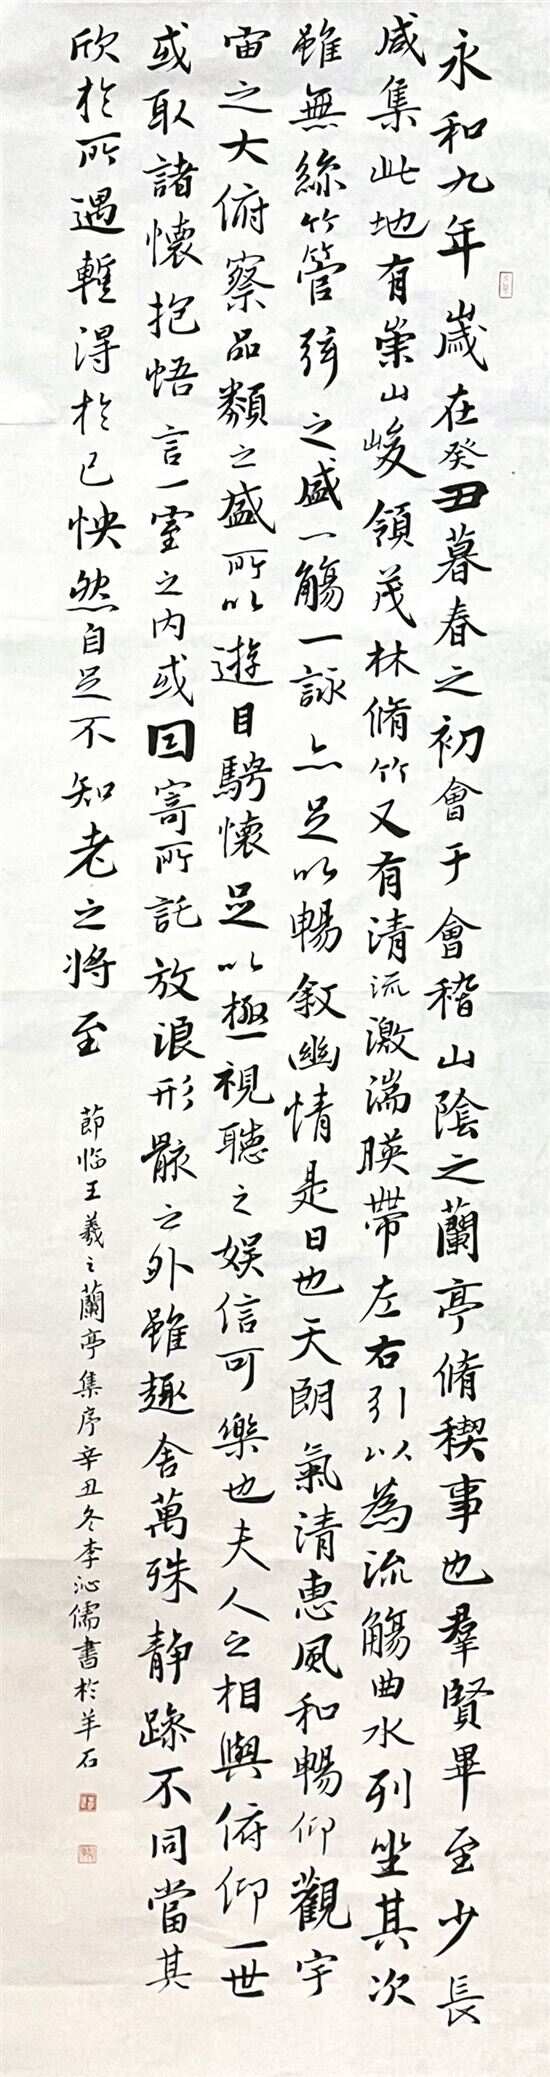 永和九年歲在癸丑暮春之初會于會稽山陰之蘭亭脩稧事也羣賢畢至少長
咸集此地有崇山峻領茂林脩竹又有清流激湍暎帶左右引以為流觴曲水列坐其次
雖無絲竹管弦之盛一觴一詠亦足以暢敘幽情是日也天朗氣清惠風和暢仰觀宇
宙之大俯察品類之盛所以遊目騁懷足以極視聽之娛信可樂也夫人之相與俯仰一世
或取諸懷抱悟言一室之內或因寄所託放浪形骸之外雖趣舍萬殊静躁不同當其
欣於所遇暫得於己怏然自足不知老之將至
節臨王羲之蘭亭集序辛丑冬李沁儒書於羊石